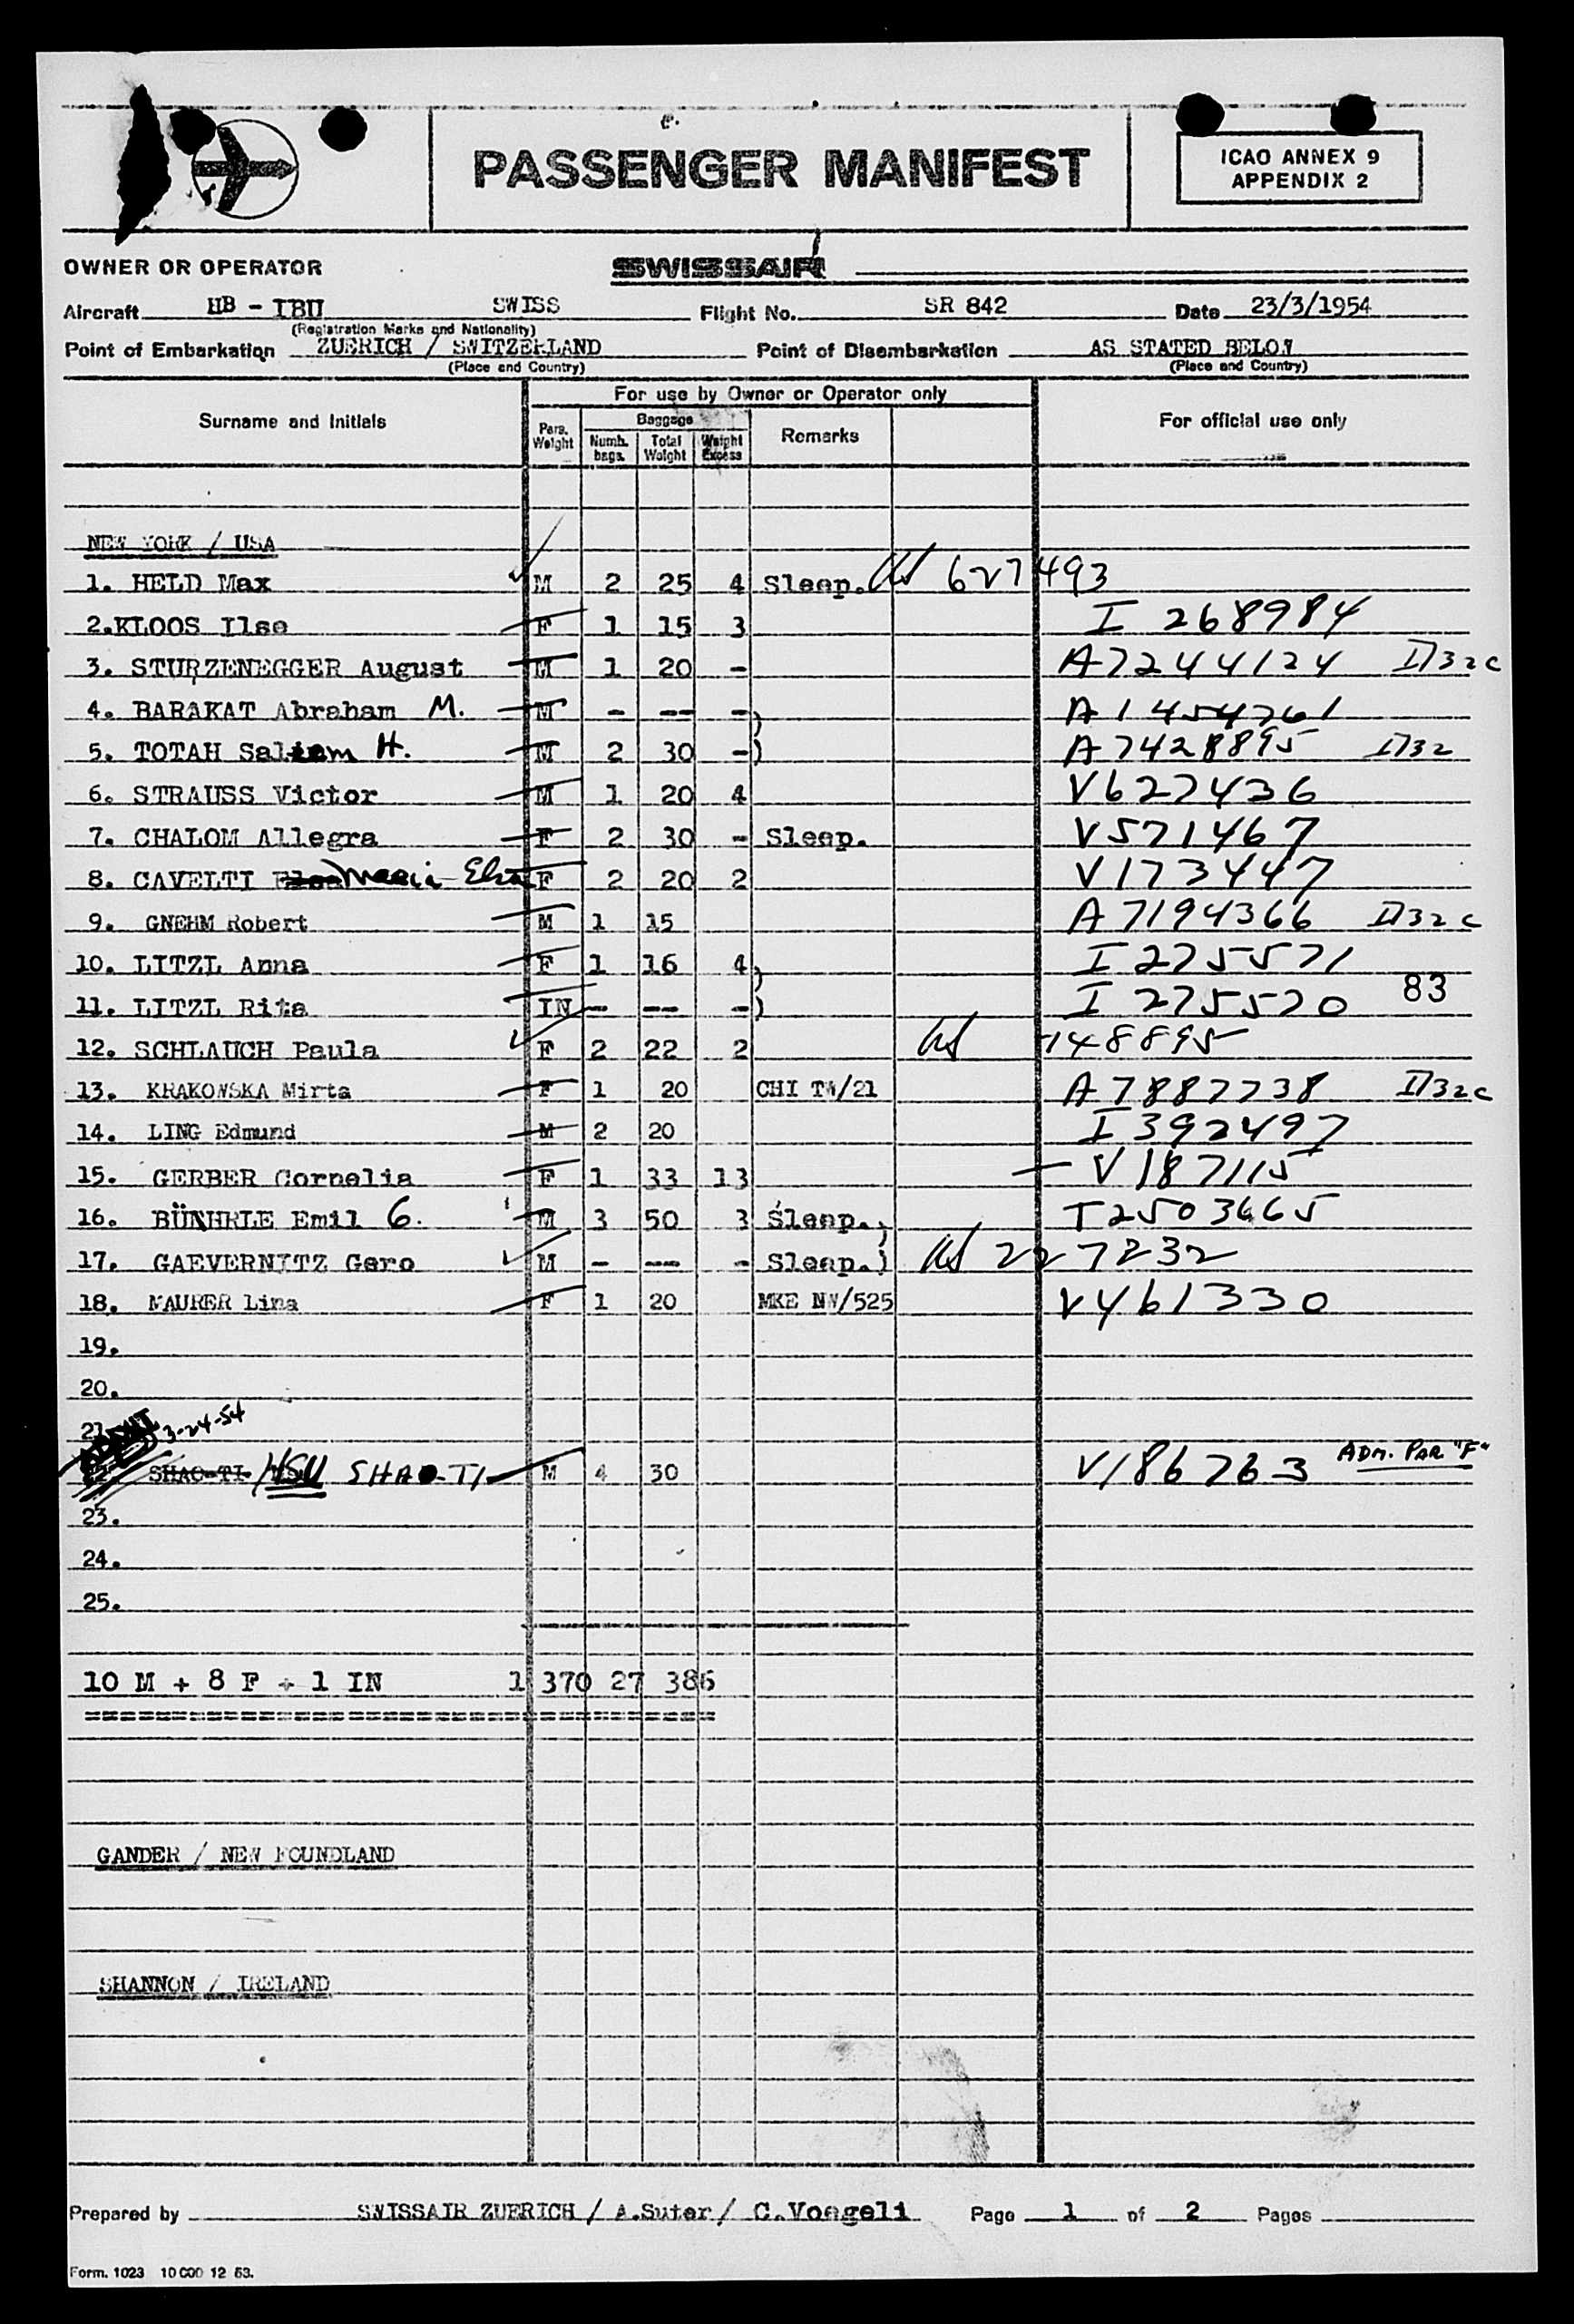 PASSENGER MANIFEST
ICAO ANNEX 9
APPENDIX 2
OWNER OR OPERATOR SWISSAIR
Aircraft HB - IBU SWISS Flight No. SR 842 Date 23/3/1954
(Registration Marks and Nationality)
Point of Embarkation ZUERICH / SWITZERLAND Point of Disembarkation AS STATED BELOW
(Place and Country) (Place and Country)
Surname and Initials For use by Owner or Operator only For official use only
Pass. Weight Baggage Numb. bags. Total Weight Weight Excess Remarks
NEW YORK / USA
1. HELD Max M 2 25 4 Sleep. US 627493
2.KLOOS Ilse F 1 15 3 I 268984
3. STURZENEGGER August M 1 20 - A7244124 I732c
4. BARAKAT Abraham M. M - -- -) A1454261
5. TOTAH Saleem H. M 2 30 -) A7428895 I732
6. STRAUSS Victor M 1 20 4 V627436
7. CHALOM Allegra F 2 30 - Sleep. V571467
8. CAVELTI Maria-Elsa F 2 20 2 V173447
9. GNEHM Robert M 1 15 A7194366 I732c
10. LITZL Anna F 1 16 4) I275571
11. LITZL Rita IN - -- -) I275570 83
12. SCHLAUCH Paula F 2 22 2 US 148895
13. KRAKOWSKA Mirta F 1 20 CHI TW/21 A7887738 I732c
14. LING Edmund M 2 20 I392497
15. GERBER Cornelia F 1 33 13 - V187115
16. BÜHRLE Emil G. M 3 50 3 Sleep.) T2503665
17. GAEVERNITZ Gero M - -- - Sleep.) US 227232
18. MAURER Lina F 1 20 MKE NW/525 V461330
19.
20.
21. ADMIT 3-24-54
22. SHAO-TI HSU SHAO-TI M 4 30 V186763 ADM. PAR "F"
23.
24.
25.
10 M + 8 F + 1 IN 1 370 27 386
GANDER / NEW FOUNDLAND
SHANNON / IRELAND
Prepared by SWISSAIR ZUERICH / A.Suter / C.Voegeli Page 1 of 2 Pages
Form. 1023 10 000 12 53.